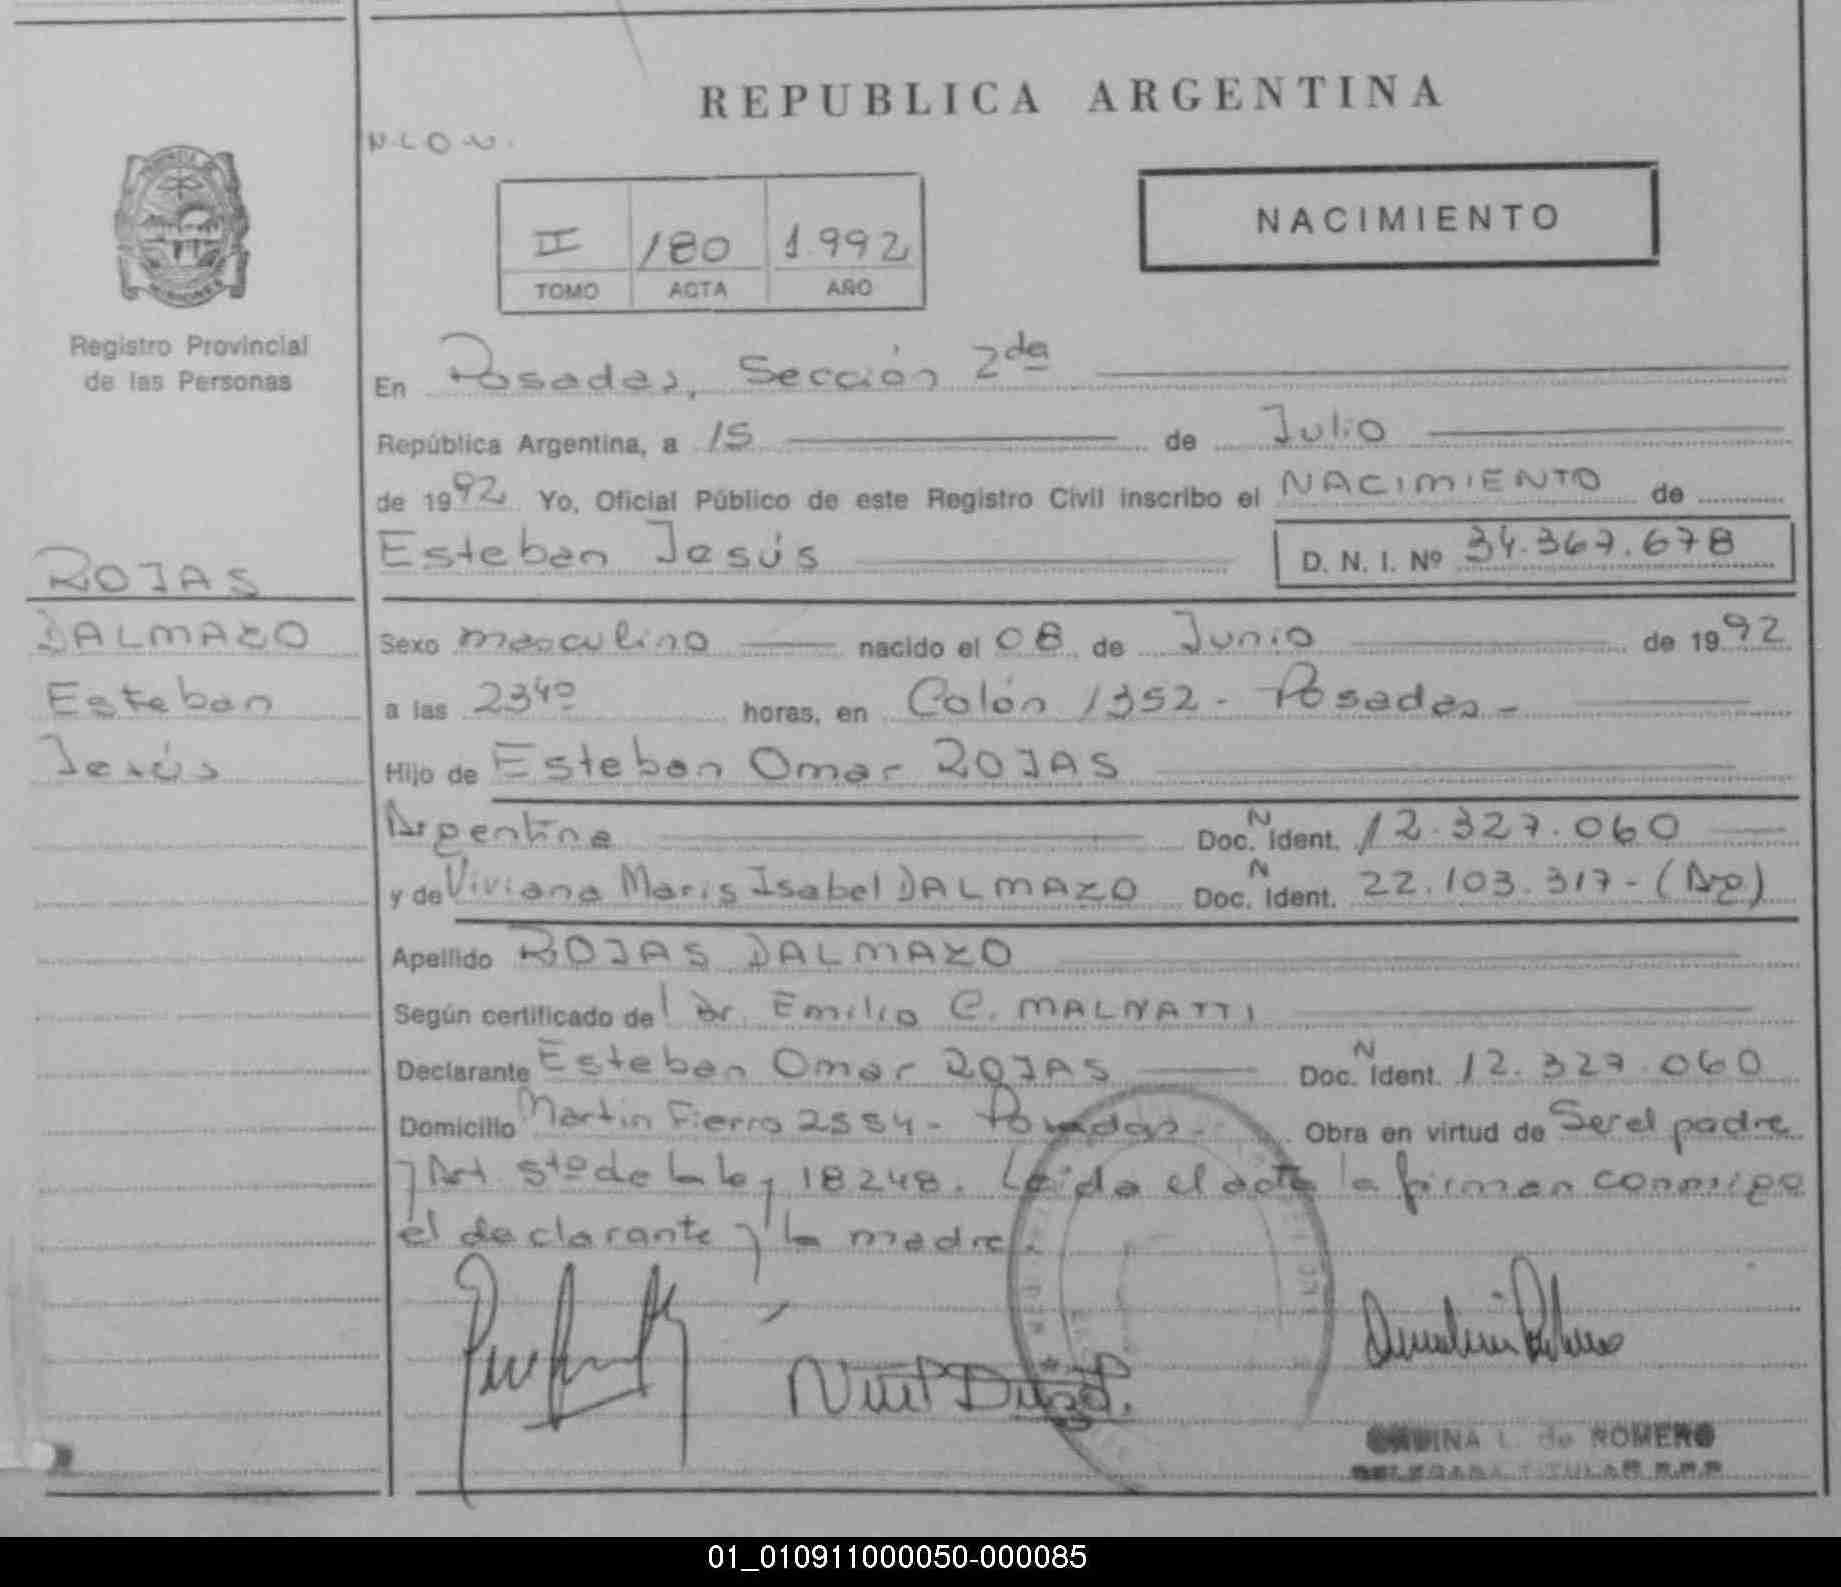 REPUBLICA ARGENTINA
N.L.O.U.
NACIMIENTO
II 180 1.992
TOMO ACTA AÑO
MISIONES
Registro Provincial
de las Personas
En Posadas, Sección 2da
República Argentina, a 15 de Julio
de 1992 Yo, Oficial Público de este Registro Civil inscribo el NACIMIENTO de
Esteban Jesús D. N. I. Nº 34.367.678
ROJAS
DALMAZO
Esteban
Jesús
Sexo masculino nacido el 08 de Junio de 1992
a las 23 40 horas, en Colón 1352 - Posadas -
Hijo de Esteban Omar ROJAS
Argentina Doc. N Ident. 12.327.060
y de Viviana Maris Isabel DALMAZO Doc. N Ident. 22.103.317 - (Arg)
Apellido ROJAS DALMAZO
Según certificado del Dr. Emilio C. MALNATTI
Declarante Esteban Omar ROJAS Doc. N Ident. 12.327.060
Domicilio Martin Fierro 2554 - Posadas - Obra en virtud de Ser el padre
y Art. 5to de la ley 18248. Leida el acta la firman conmigo
el declarante y la madre.
L. de ROMERO
DELEGADA TITULAR R.P.P.
01_010911000050-000085